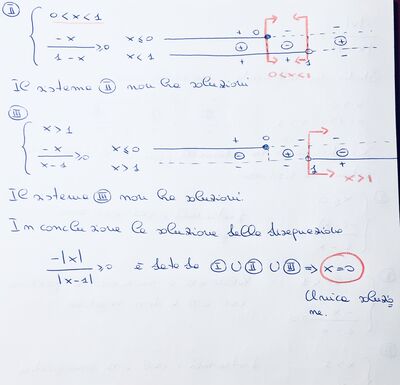 II
0 < x < 1
-x / 1-x ≥ 0 x ≤ 0 x < 1
+ 0 - -
⊕ ⊖ ⊕
+ + 1 -
0 < x < 1
Il sistema II non ha soluzioni
III
x > 1
-x / x-1 ≥ 0 x ≤ 0 x > 1
+ 0 - -
⊖ ⊕ ⊖
- - 1 +
x > 1
Il sistema III non ha soluzioni.
In conclusione la soluzione della disequazione
-|x| / |x-1| ≥ 0 è data da I ∪ II ∪ III ⇒ x=0
Unica soluzio
ne.